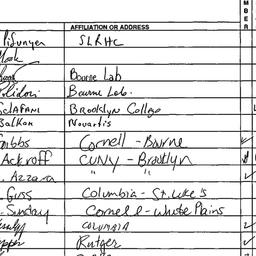 AFFILIATION OR ADDRESS
PiSunyer SLRHC
Bourne Lab
Bourne Lab.
Sclafani Brooklyn College
Balkan Novartis
Gibbs Cornell - Bourne
Ackroff CUNY - Brooklyn
. Azzara " "
. Guss Columbia - St. Luke's
. Sunday Cornell - White Plains
COLUMBIA
Rutger